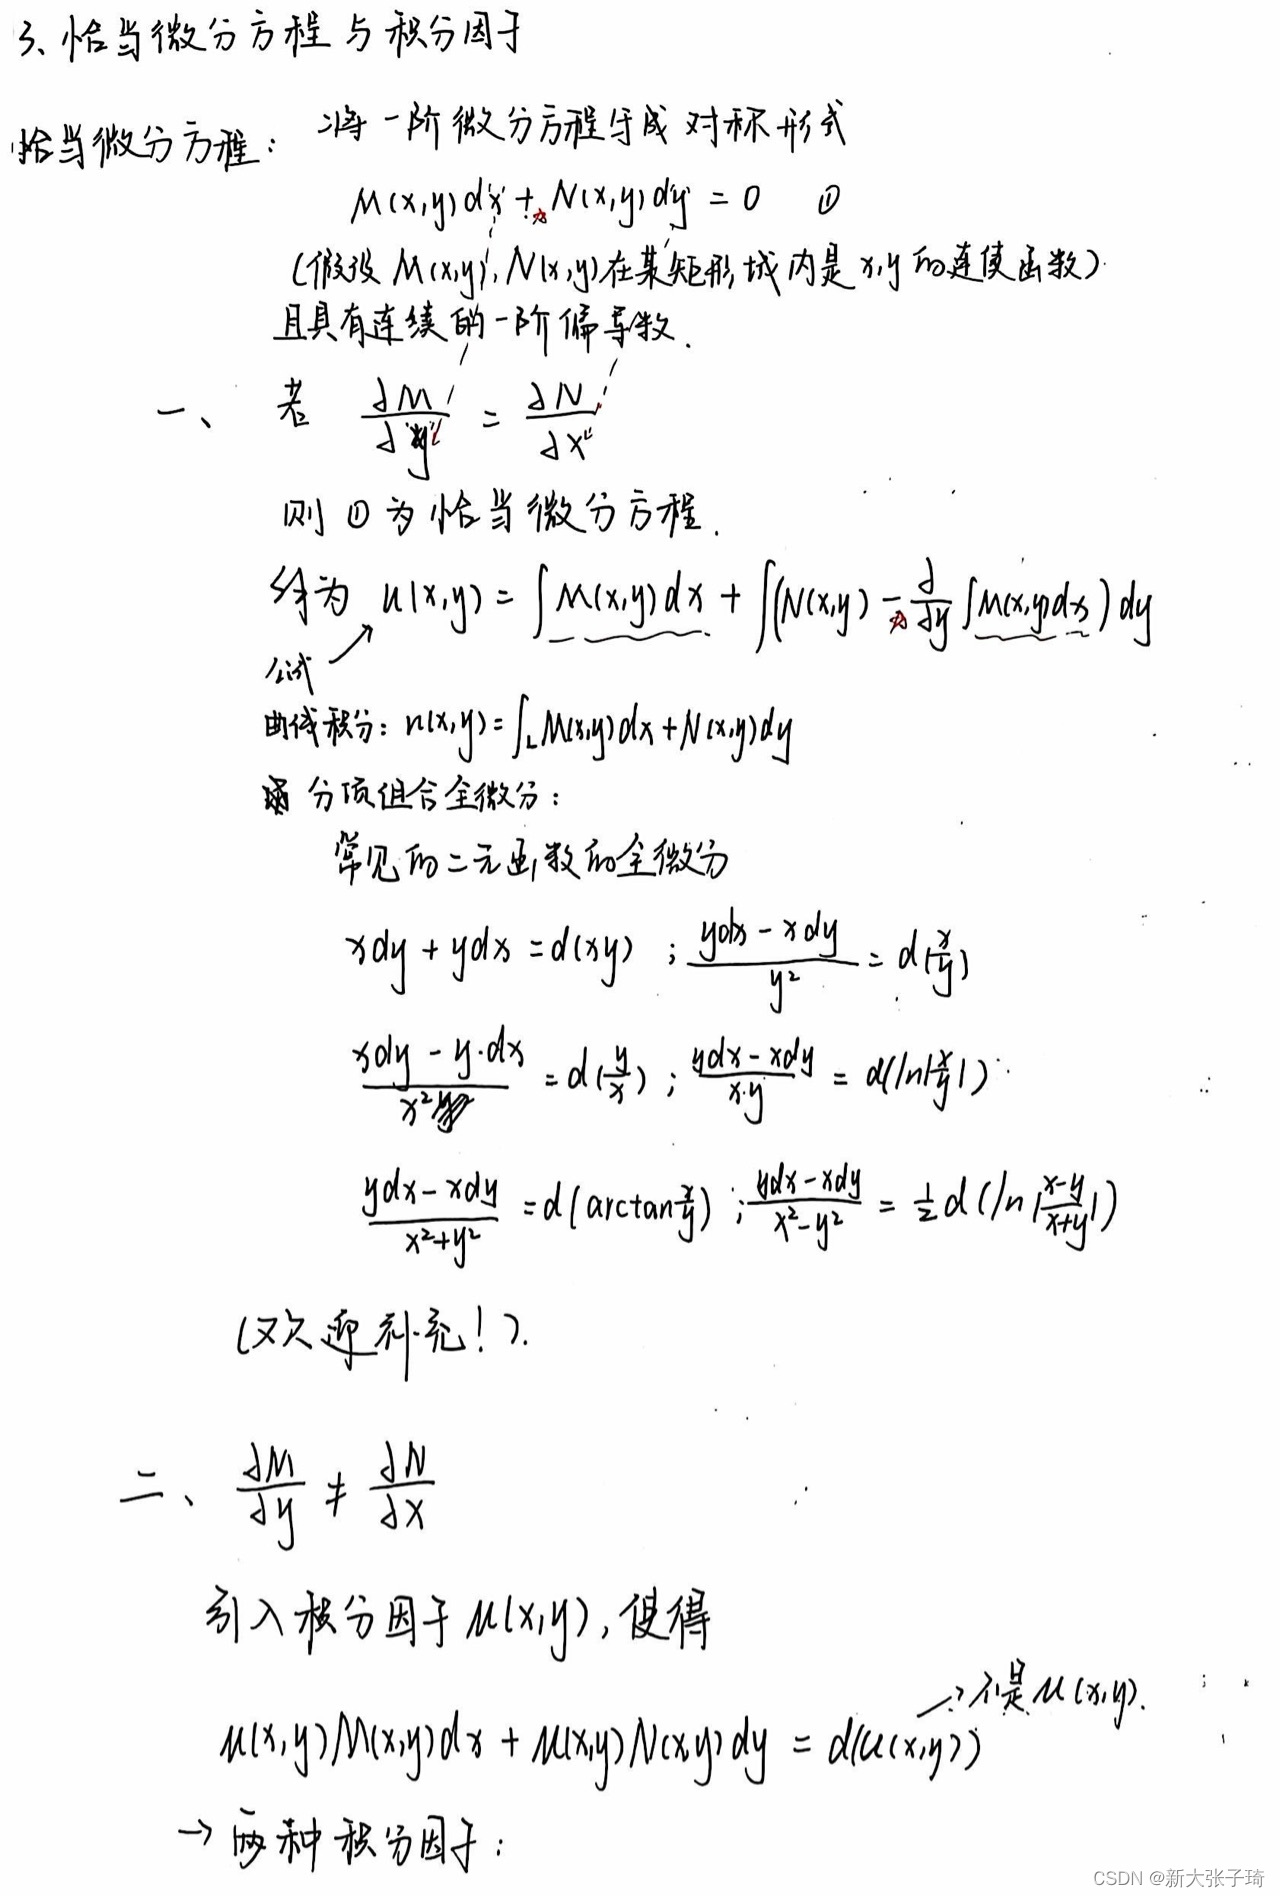 3、恰当微分方程与积分因子
恰当微分方程: 将一阶微分方程写成对称形式
M(x,y)dx + N(x,y)dy = 0 ①
(假设M(x,y), N(x,y)在某矩形域内是x,y的连续函数)
且具有连续的一阶偏导数.
一、若 ∂M/∂y = ∂N/∂x
则①为恰当微分方程.
u(x,y) = ∫M(x,y)dx + ∫(N(x,y) - ∂/∂y ∫M(x,y)dx)dy
公式
曲线积分: u(x,y)=∫_L M(x,y)dx+N(x,y)dy
分项组合全微分:
常见的二元函数的全微分
xdy + ydx = d(xy) ; (ydx - xdy)/y² = d(x/y)
(xdy - y·dx)/x² = d(y/x) ; (ydx - xdy)/(x·y) = d(ln|x/y|)
(ydx - xdy)/(x²+y²) = d(arctan x/y) ; (ydx - xdy)/(x²-y²) = 1/2 d(ln|(x-y)/(x+y)|)
(欢迎补充!).
二、∂M/∂y ≠ ∂N/∂x
引入积分因子μ(x,y), 使得
→不是μ(x,y).
μ(x,y)M(x,y)dx + μ(x,y)N(x,y)dy = d(u(x,y))
→两种积分因子:
CSDN @新大张子琦